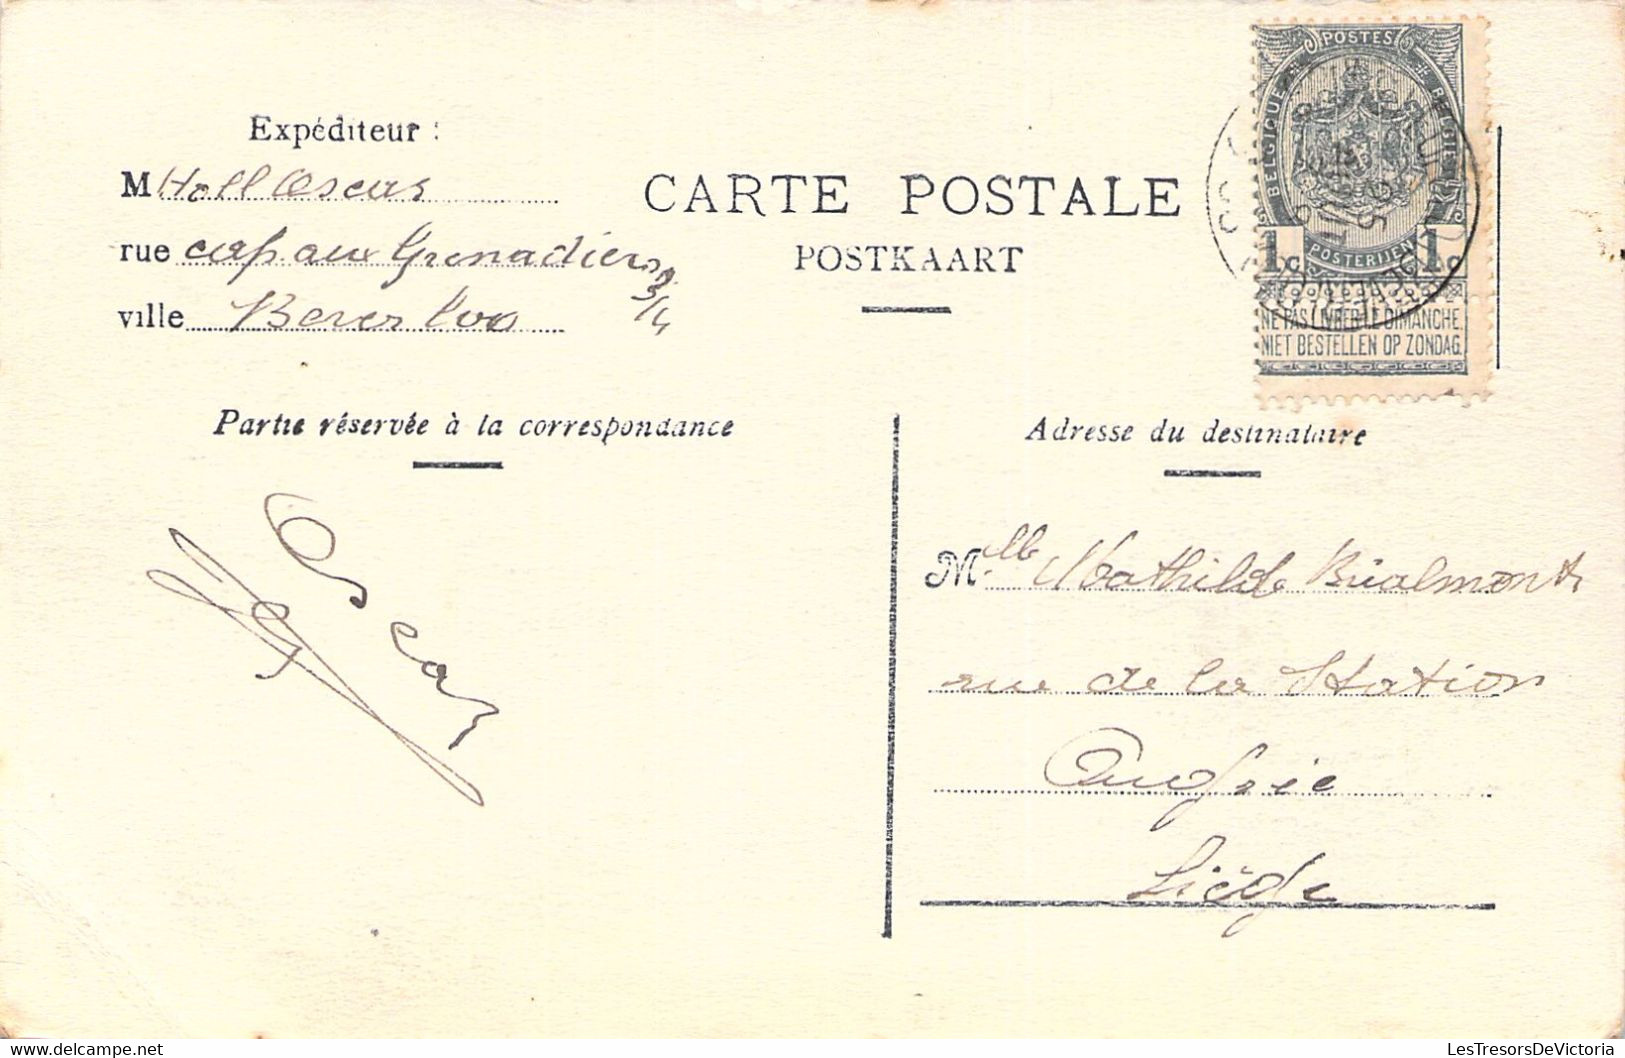 Expéditeur :
M Holl Oscar
rue cap aux Grenadiers
3/4
ville Beverloo
CARTE POSTALE
POSTKAART
POSTES
BELGIQUE
BELGIË
POSTERIJEN
1c 1c
NE PAS LIVRER LE DIMANCHE.
NIET BESTELLEN OP ZONDAG.
Partie réservée à la correspondance
Adresse du destinataire
Oscar
Mlle Mathilde Brialmont
rue de la Station
Liège
LesTresorsDeVictoria